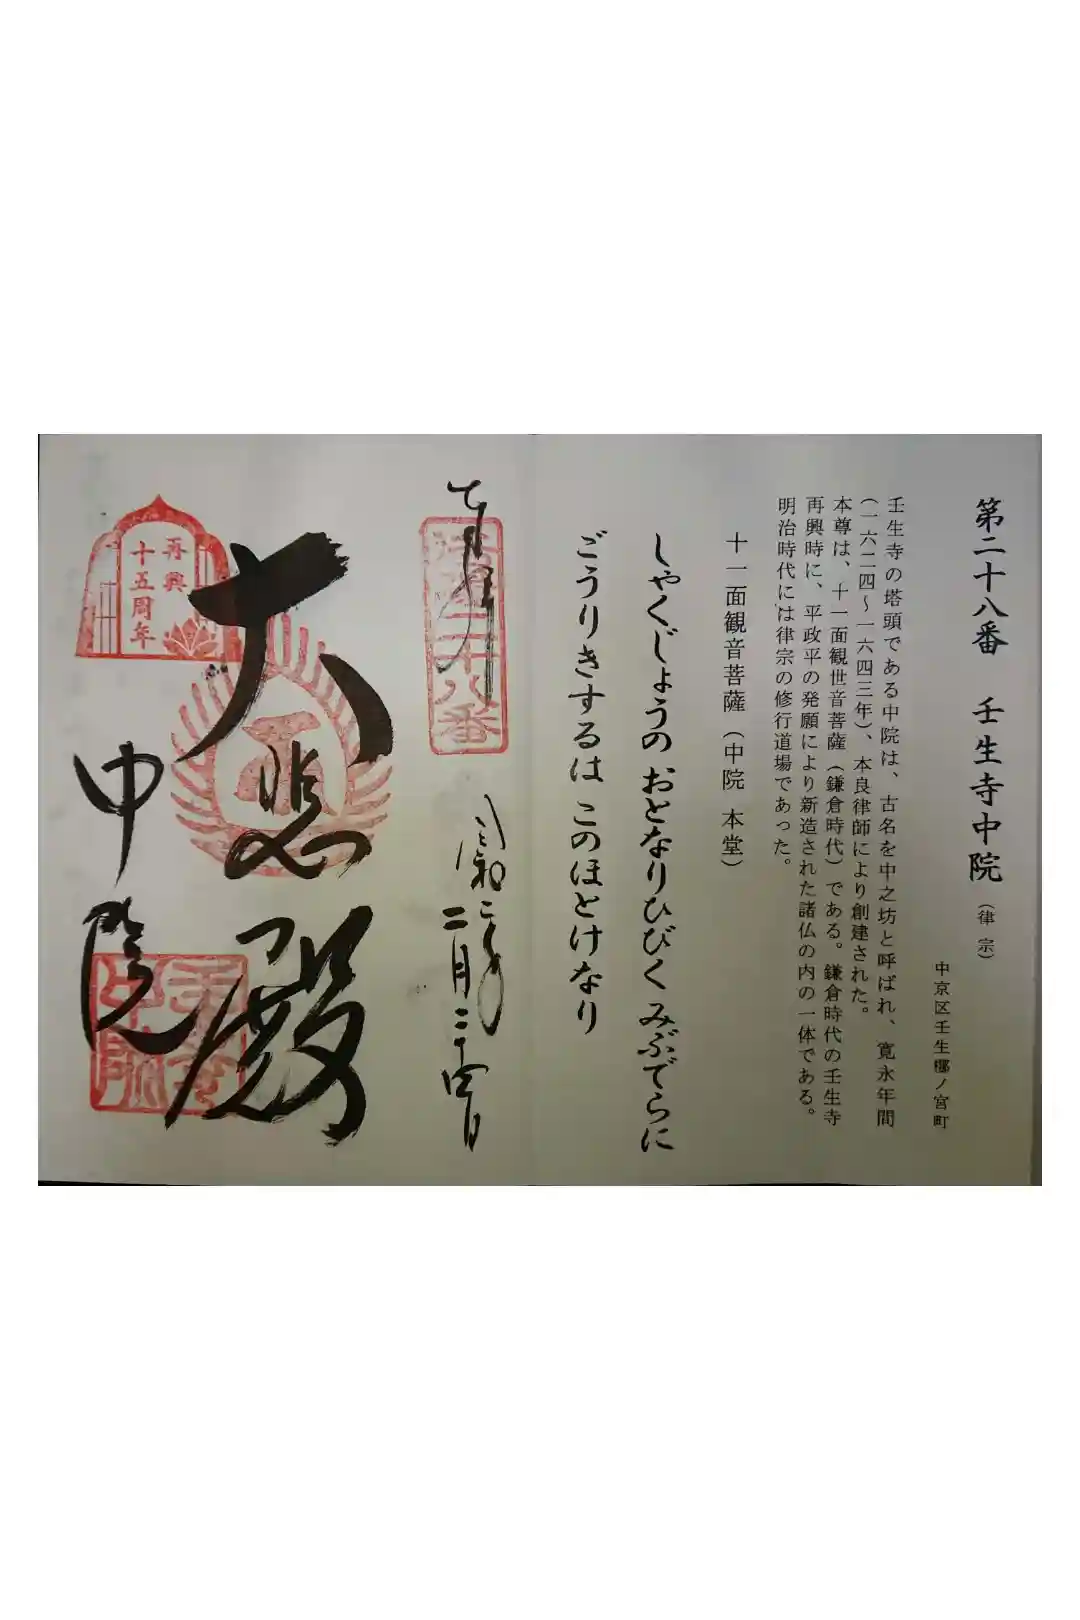 第二十八番 壬生寺中院（律宗）
中京区壬生梛ノ宮町
壬生寺の塔頭である中院は、古名を中之坊と呼ばれ、寛永年間
（一六二四〜一六四三年）、本良律師により創建された。
本尊は、十一面観世音菩薩（鎌倉時代）である。鎌倉時代の壬生寺
再興時に、平政平の発願により新造された諸仏の内の一体である。
明治時代には律宗の修行道場であった。
十一面観音菩薩（中院 本堂）
しゃくじょうの おとなりひびく みぶでらに
ごうりきするは このほとけなり
奉拝
洛陽二十八番
令和二年二月二十四日
大悲殿
再興
十五周年
中院